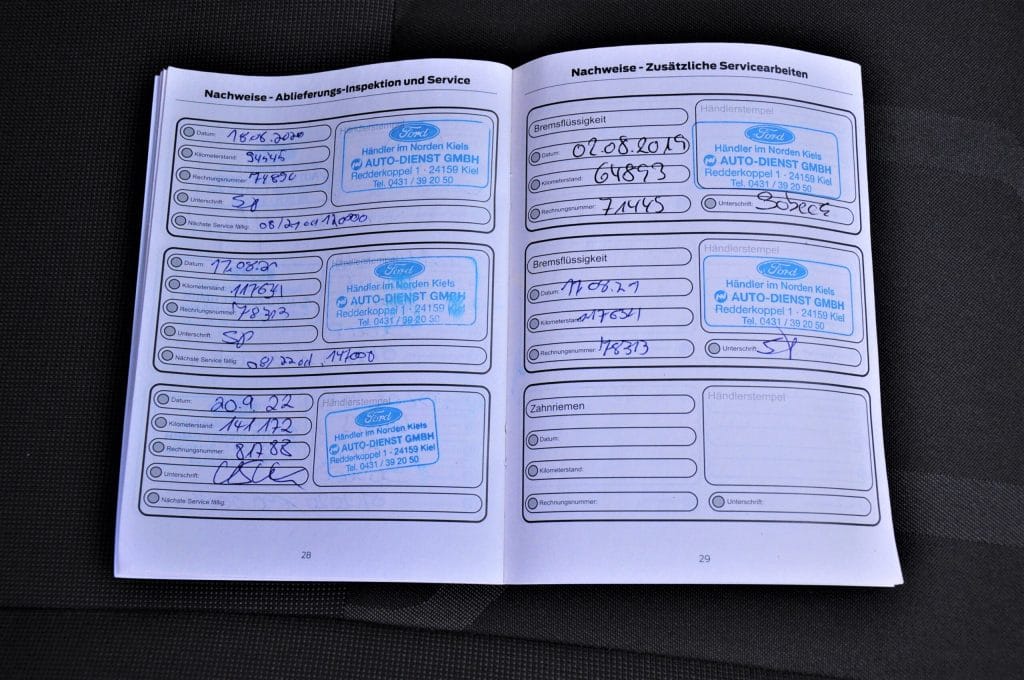 Nachweise - Ablieferungs-Inspektion und Service
Händlerstempel
Datum: 18.08.2020
Kilometerstand: 94545
Rechnungsnummer: 74890
Unterschrift: Sp
Nächste Service fällig: 08/21 od 120000
Ford
Händler im Norden Kiels
AUTO-DIENST GMBH
Redderkoppel 1 · 24159 Kiel
Tel. 0431 / 39 20 50
Händlerstempel
Datum: 17.08.21
Kilometerstand: 117641
Rechnungsnummer: 78313
Unterschrift: Sp
Nächste Service fällig: 08/22 od. 147000
Ford
Händler im Norden Kiels
AUTO-DIENST GMBH
Redderkoppel 1 · 24159 Kiel
Tel. 0431 / 39 20 50
Händlerstempel
Datum: 20.9.22
Kilometerstand: 141172
Rechnungsnummer: 81788
Unterschrift:
Nächste Service fällig:
Ford
Händler im Norden Kiels
AUTO-DIENST GMBH
Redderkoppel 1 · 24159 Kiel
Tel. 0431 / 39 20 50
28
Nachweise - Zusätzliche Servicearbeiten
Bremsflüssigkeit
Händlerstempel
Datum: 02.08.2019
Kilometerstand: 64893
Rechnungsnummer: 71445
Ford
Händler im Norden Kiels
AUTO-DIENST GMBH
Redderkoppel 1 · 24159 Kiel
Tel. 0431 / 39 20 50
Unterschrift:
Bremsflüssigkeit
Händlerstempel
Datum: 17.08.21
Kilometerstand: 117641
Rechnungsnummer: 78313
Ford
Händler im Norden Kiels
AUTO-DIENST GMBH
Redderkoppel 1 · 24159 Kiel
Tel. 0431 / 39 20 50
Unterschrift: Sp
Zahnriemen
Händlerstempel
Datum:
Kilometerstand:
Rechnungsnummer:
Unterschrift:
29